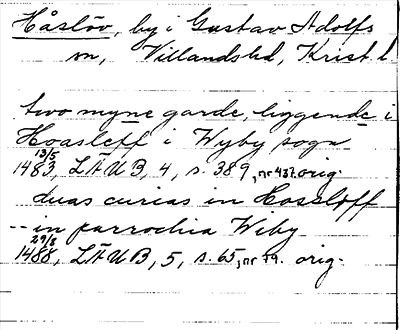 Håslöv, by i Gustav Adolfs
sn, Villandshd, Krist l.
two myne garde, liggende i
Hoasleff i Wyby sogn
13/5
1483, LÄUB, 4, s. 389, nr 437. orig.
duas curias in Hoseloff
-- in parrochia Wiby
29/8
1488, LÄUB, 5, s. 65, nr 79. orig.